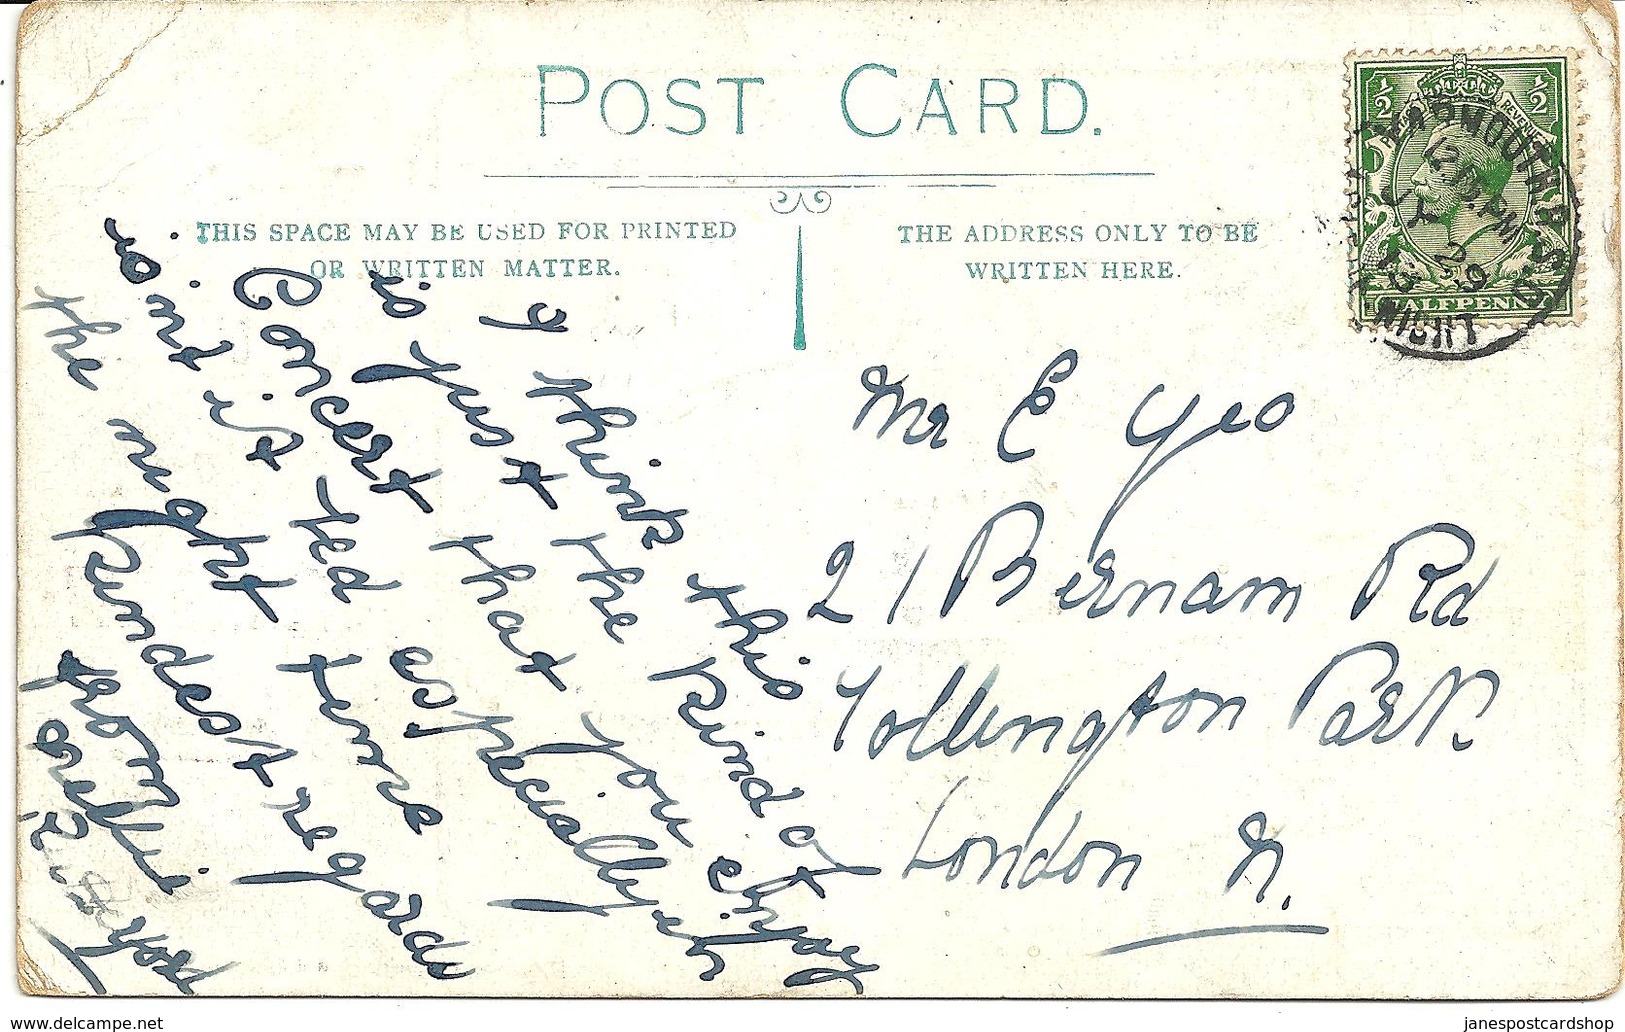 POST CARD.
THIS SPACE MAY BE USED FOR PRINTED
OR WRITTEN MATTER.
THE ADDRESS ONLY TO BE
WRITTEN HERE.
½ ½
REVENUE
HALFPENNY
YARMOUTH B.S.O.
PM
29
13
WIGHT
I think this
is just the kind of
Concert that you enjoy
isint it Ted especially eh
the night time
Kindest regards
from
Mr E Yeo
21 Bernam Rd
Tollington Park
London N.
www.delcampe.net
janespostcardshop